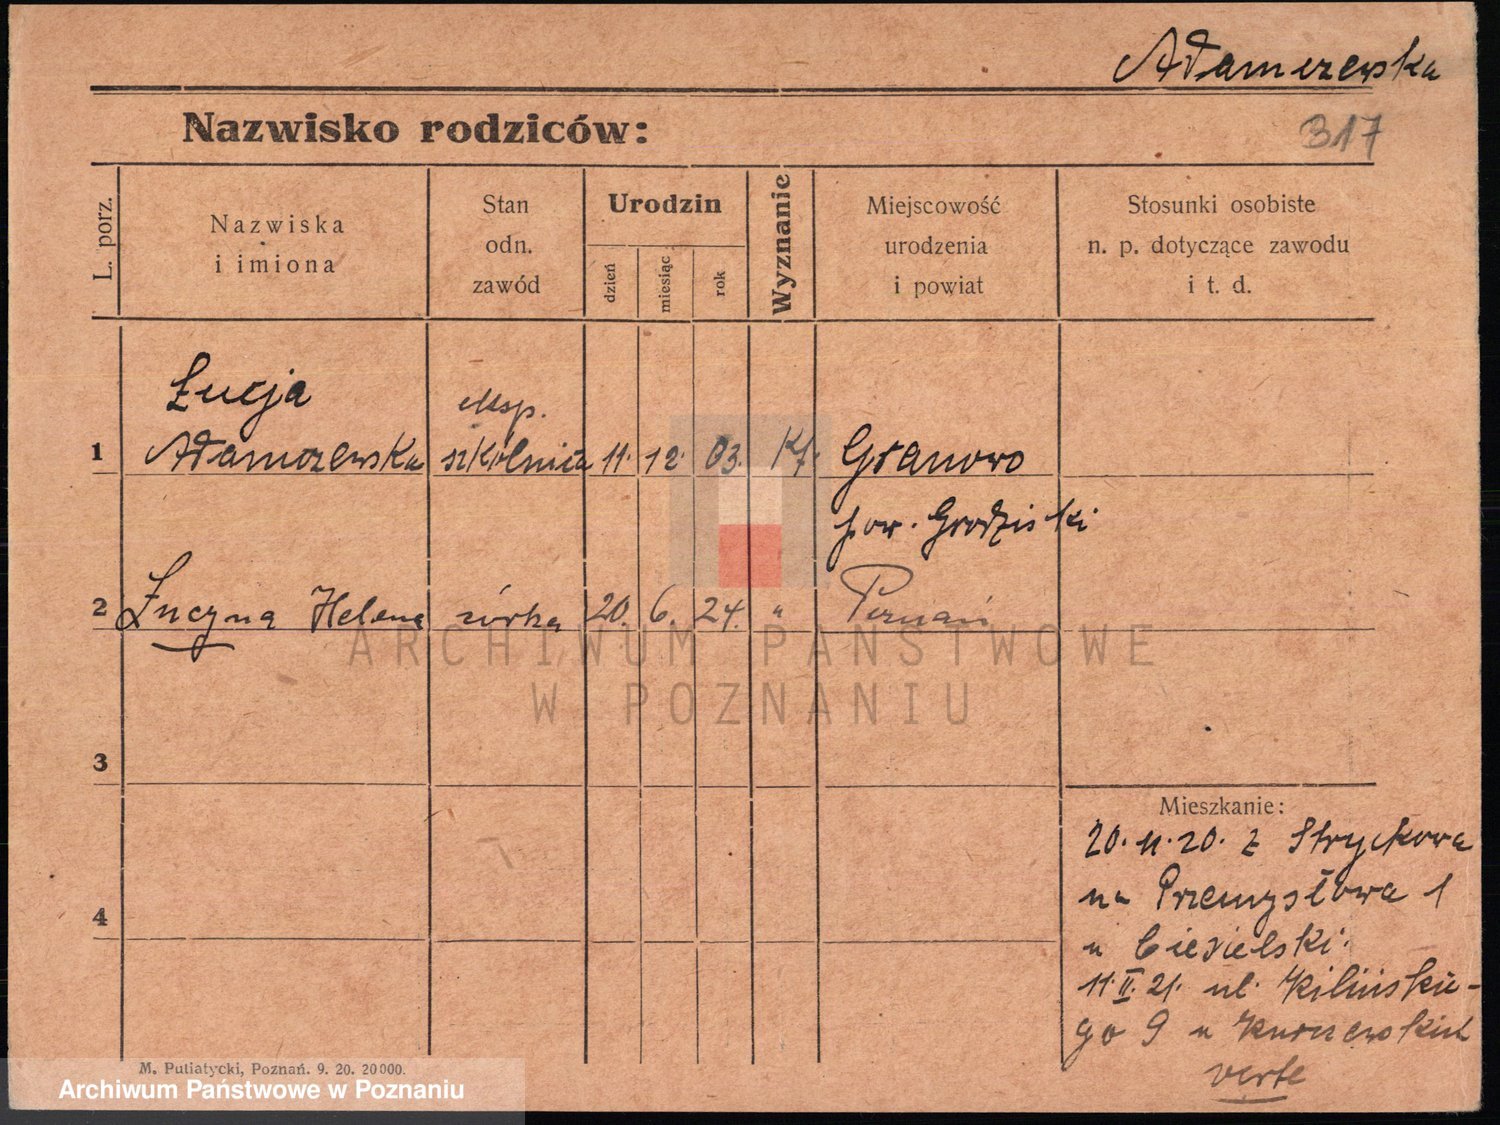 Adamczewska
317
Nazwisko rodziców:
L. porz.
Nazwiska
i imiona
Stan
odn.
zawód
Urodzin
dzień
miesiąc
rok
Wyznanie
Miejscowość
urodzenia
i powiat
Stosunki osobiste
n. p. dotyczące zawodu
i t. d.
Łucja
eksp.
1 Adamczewska szkolnica 11. 12. 03. Kt. Granowo
pow. Grodziski
2 Łucyna Helena córka 20. 6. 24. " Poznań
ARCHIWUM PAŃSTWOWE
W POZNANIU
3
Mieszkanie:
20.11.20. z Stryckowa
na Przemysłowa 1
u Ciesielski.
4
11.II.21. ul. Kilińskie-
go 9 u
verte
M. Putiatycki, Poznań. 9. 20. 20000.
Archiwum Państwowe w Poznaniu